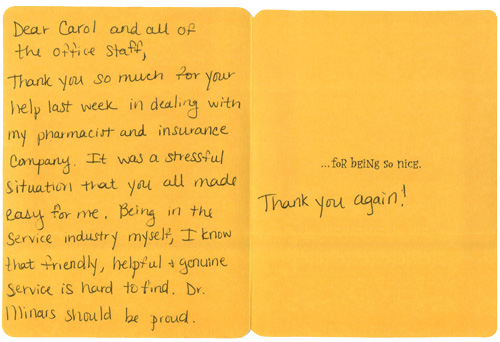 Dear Carol and all of
the office staff,
Thank you so much for your
help last week in dealing with
my pharmacist and insurance
company. It was a stressful
situation that you all made
easy for me. Being in the
service industry myself, I know
that friendly, helpful + genuine
service is hard to find. Dr.
Illinois should be proud.
...for being so nice.
Thank you again!